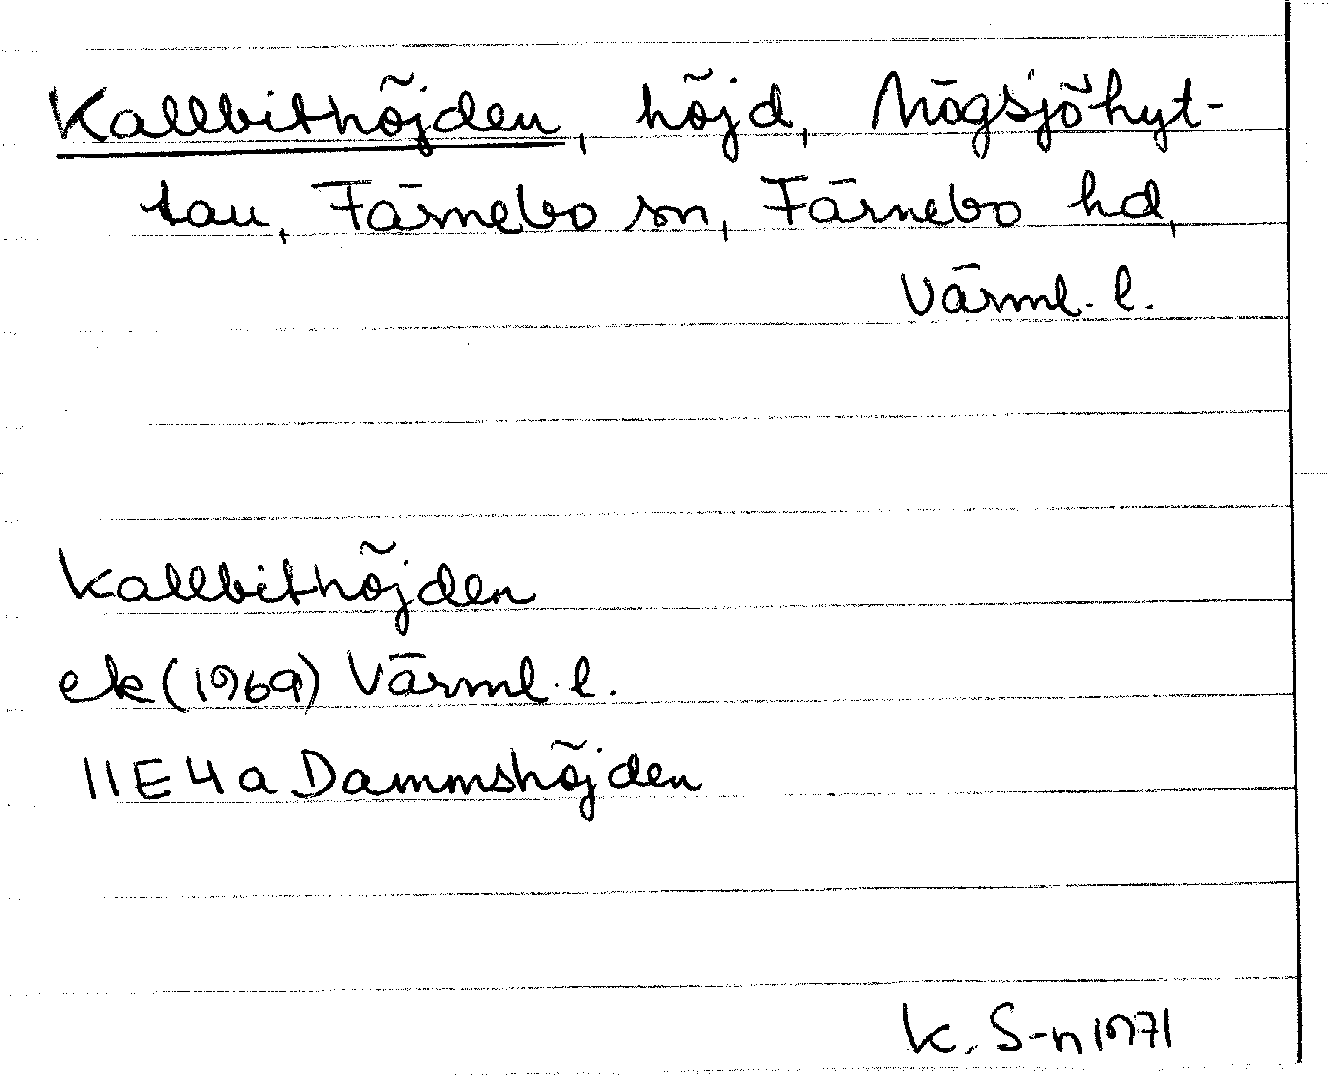 Kallbithöjden, höjd, Någsjöhyt-
tan, Färnebo sn, Färnebo hd,
Värml. l.
Kallbithöjden
ek (1969) Värml. l.
11E4a Dammshöjden
K. S-n 1971